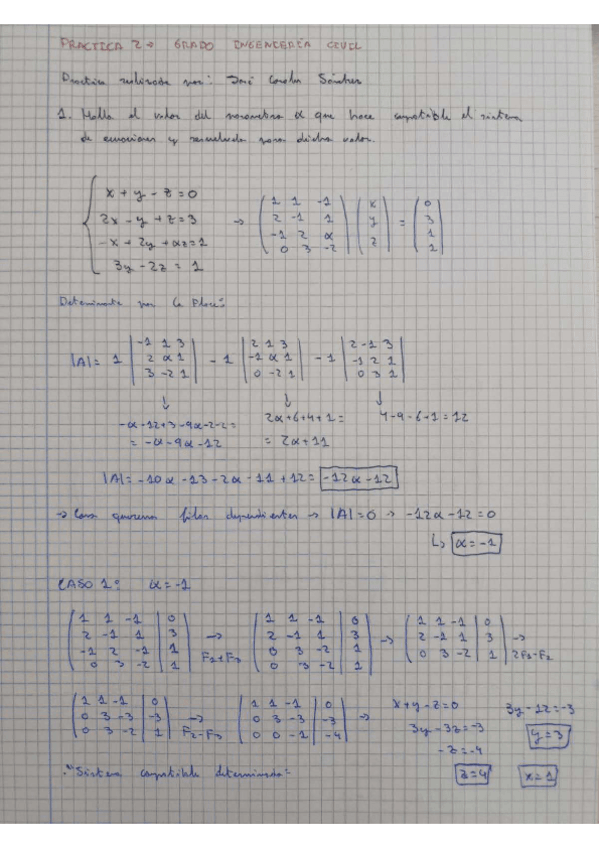 PRACTICA 2 → GRADO INGENIERÍA CIVIL
Practica realizada por: José Sánchez
1. Halla el valor del parametro α que hace compatible el sistema
de ecuaciones y resuelvelo para dicho valor.
x + y - z = 0
2x - y + z = 3
-x + 2y + αz = 1
3y - 2z = 1
→ (1 1 -1; 2 -1 1; -1 2 α; 0 3 -2) (x; y; z) = (0; 3; 1; 1)
Determinante por
|A| = 1 |-1 1 3; 2 α 1; 3 -2 1| - 1 |2 1 3; -1 α 1; 0 -2 1| - 1 |2 -1 3; -1 2 1; 0 3 1|
↓ ↓ ↓
-α-12+3-9α-2-2= 2α+6+4+1= 4-9-6-1=12
= -α-9α-12 = 2α+11
|A| = -10α-13-2α-11+12= -12α-12
→ Como queremos filas dependientes → |A|=0 → -12α-12=0
↳ α=-1
CASO 1: α=-1
(1 1 -1 | 0; 2 -1 1 | 3; -1 2 -1 | 1; 0 3 -2 | 1) → F1+F3 (1 1 -1 | 0; 2 -1 1 | 3; 0 3 -2 | 1; 0 3 -2 | 1) → (1 1 -1 | 0; 2 -1 1 | 3; 0 3 -2 | 1) → 2F1-F2
(1 1 -1 | 0; 0 3 -3 | -3; 0 3 -2 | 1) → F2-F3 (1 1 -1 | 0; 0 3 -3 | -3; 0 0 -1 | -4) →
x+y-z=0
3y-3z=-3
-z=-4
z=4
3y-12=-3
y=3
x=1
"Sistema compatible determinado"